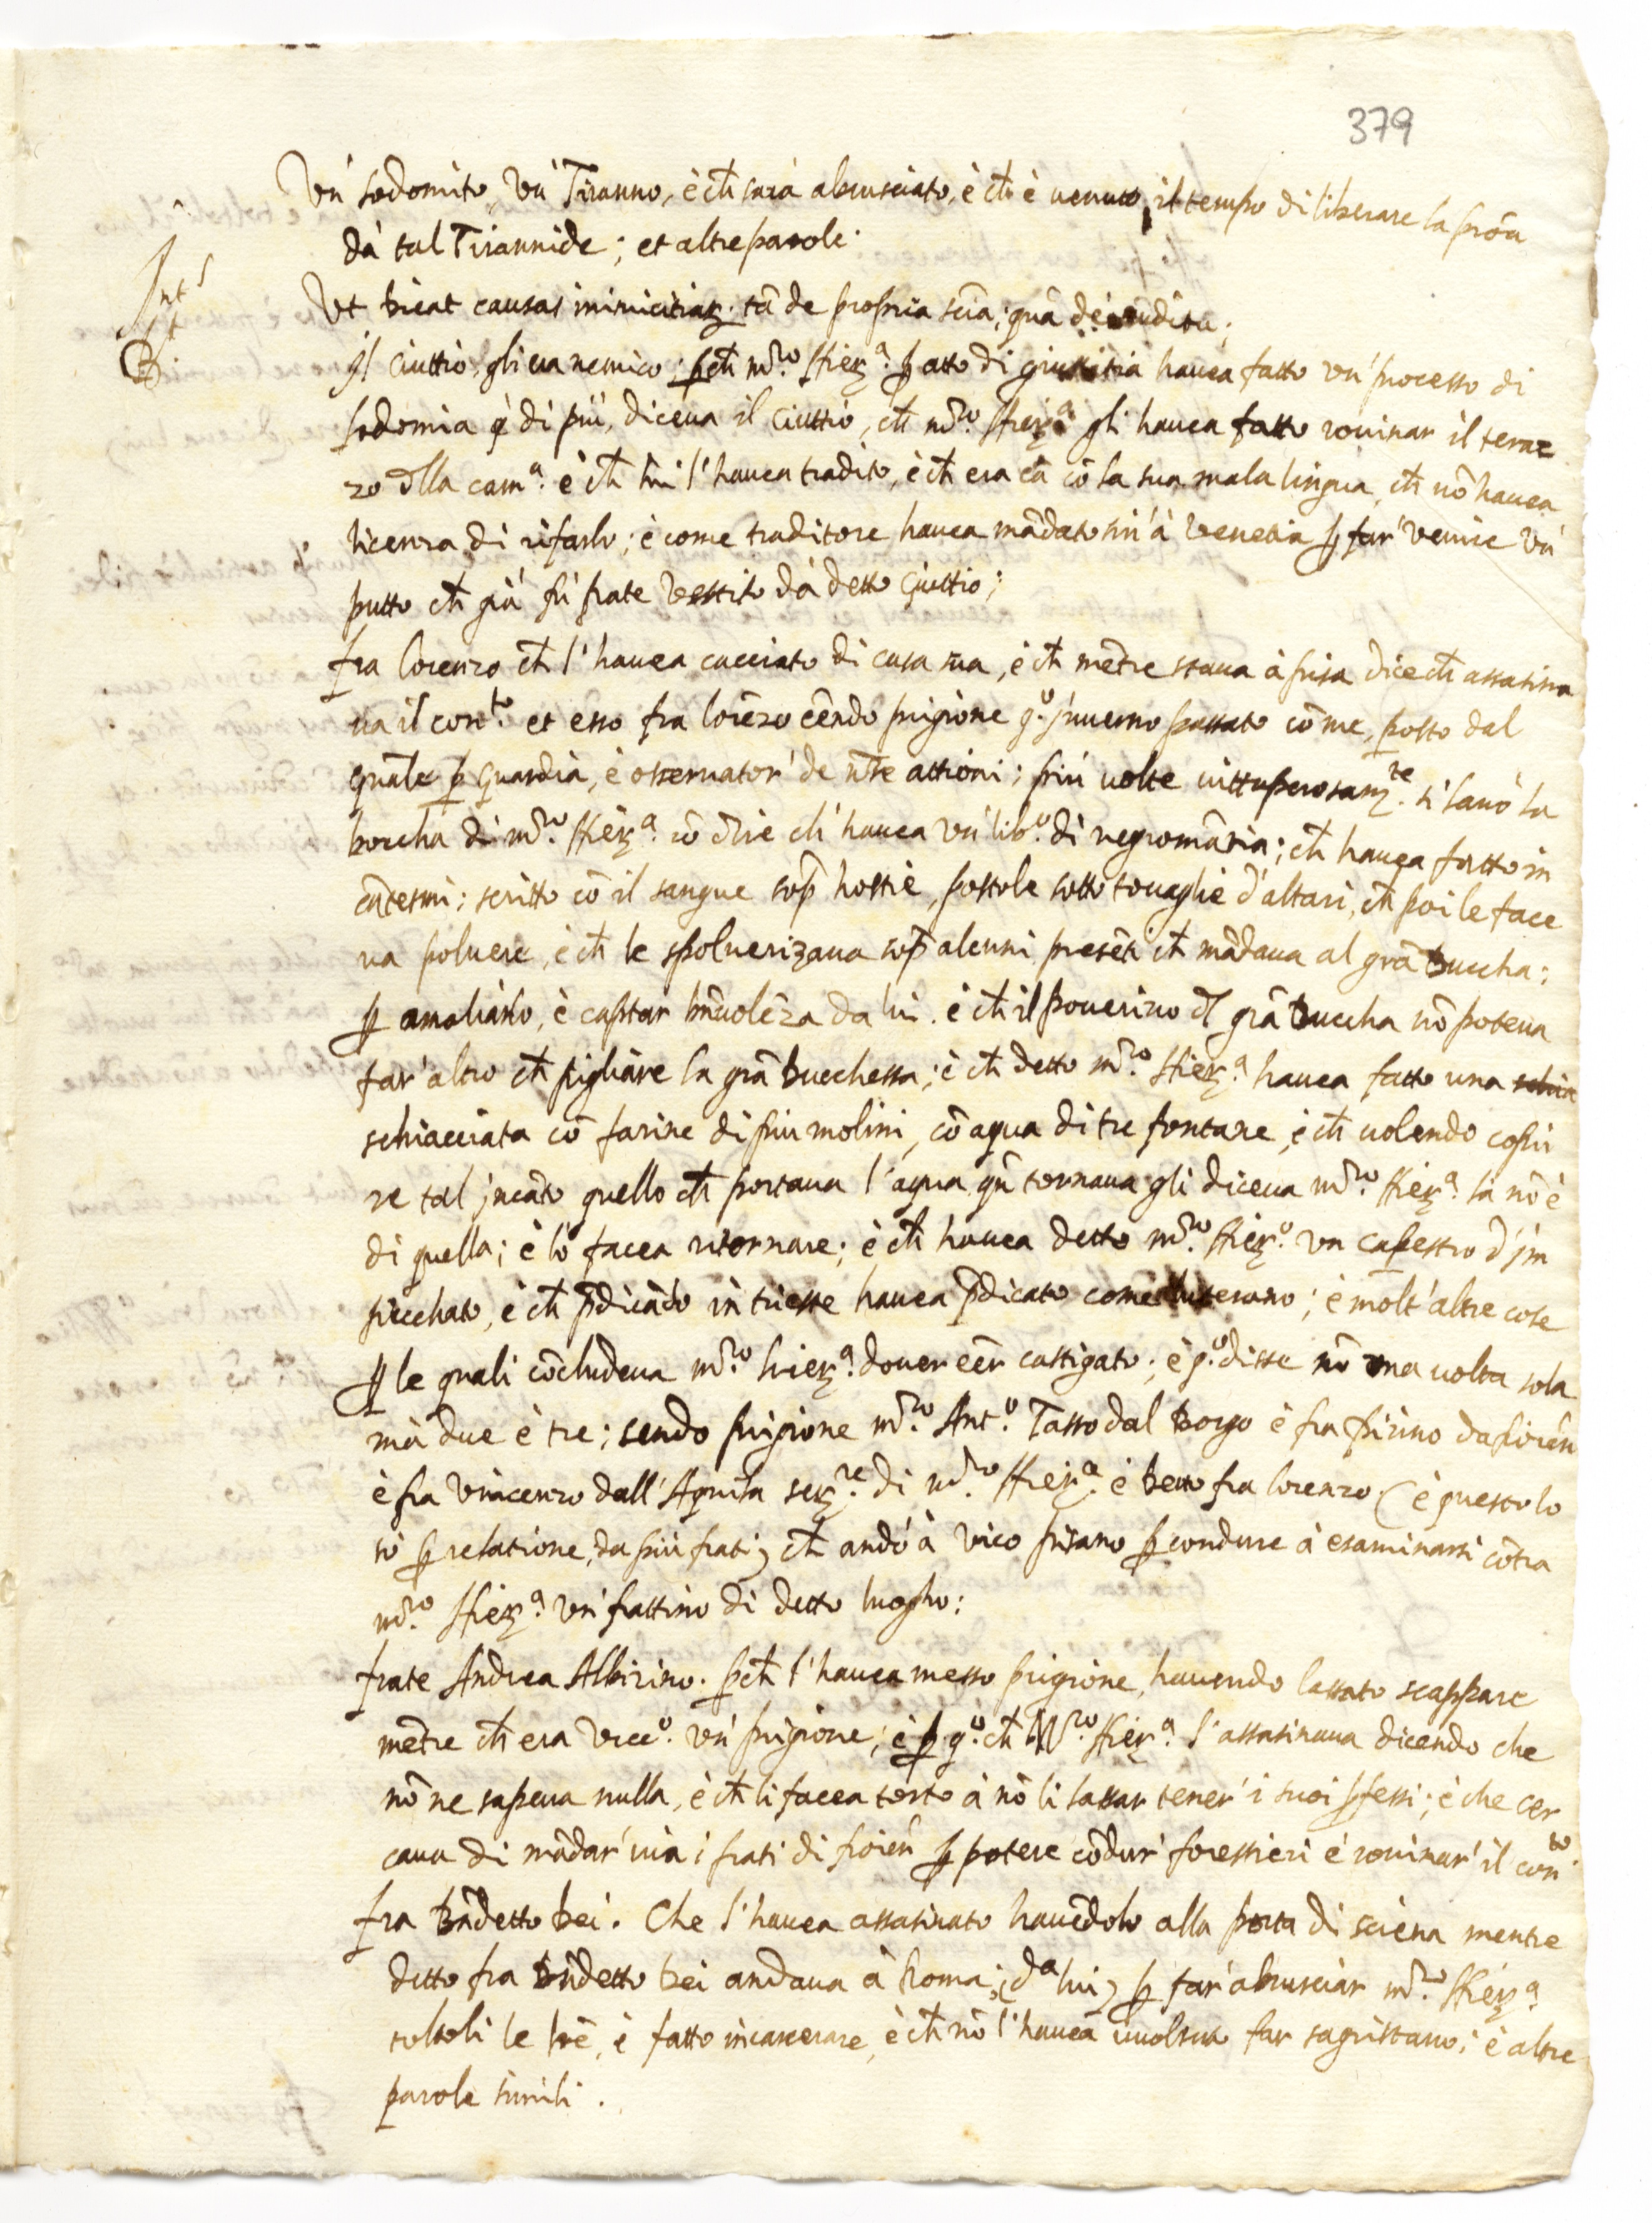 379
Un' sodomito, Un' Tiranno, è ch̃ sarà abrusciato, è ch̃ è venuto il tempo di liberare la prõa
dà tal Tirannide; et altre parole.
Int.s
et
R.
Ut dicat causas inimicitiaꝝ. tã de propria sciã; quã de auditu;
Il Ciuttio gli era nemico; ꝑch̃ m.ro Hieꝝ.a ꝑ atto di giustitia havea fatto un' processo di
sodomia è di più, diceva il Ciuttio, ch̃ m.ro Hieꝝ.a gli havea fatto rovinar il teraz
zo d̃lla cam.a è ch̃ lui l'havea tradito, è ch̃ era cã cõ la sua mala lingua, ch̃ nõ havea
licenza di rifarlo; è come traditore havea mãdato sin' à Venetia ꝑ far' venire un'
putto ch̃ già fù frate vestito dà detto Ciuttio;
fra lorenzo ch̃ l'havea cacciato di casa sua, è ch̃ mẽtre stava à pisa dice ch̃ assasina
va il con.to et esso fra lorẽzo ẽendo prigione q.o inverno passato cõ me, posto dal
quale ꝑ guardia, è osservator' de nr̃e attioni; più volte vittuperosam.te si lavò la
boccha di m.ro Hieꝝ.a cõ dire ch' havea un' lib.o di negromãzia; ch̃ havea fatto in
cãtesmi; scritto cõ il sangue sop̃ hostie, postole sotto tovaglie d'altari, ch̃ poi le face
va polvere, è ch̃ le spolverizava sop̃ alcuni presẽti ch̃ mãdava al grã Duccha;
ꝑ amaliarlo, è captar bñvolẽza da lui. è ch̃ il poverino d̃l grã Duccha nõ poteva
far' altro ch̃ pigliare la grã Ducchessa; è ch̃ detto m.ro Hieꝝ.a havea fatto una schia
schiacciata cõ farine di più molini, cõ aqua di tre fontane, è ch̃ volendo copri
re tal incãto quello ch̃ portava l'aqua, qñ tornava gli diceva m.ro Hieꝝ.a la nõ è
di quella; è lo facea ritornare; è ch̃ havea detto m.ro Hieꝝ.o un capestro d'im
picchato, è ch̃ p̃dicãdo in trieste havea p̃dicato come luterano; è molt' altre cose
ꝑ le quali cõcludeva m.ro hieꝝ.a dover eẽr castigato; è q.o disse nõ una volta sola
mà due è tre; sendo prigione m.ro Ant.o Tasso dal Borgo è fra pirino da fiorẽn
è fra Vincenzo dall'Aquila seꝝ.re di m.ro Hieꝝ.a è detto fra lorenzo. (è questo lo
sò ꝑ relatione, da più frati) ch̃ andò à Vico pisano ꝑ condure à esaminarsi cõtra
m.ro Hieꝝ.a un' frattino di detto luogho:
frate Andrea Albizino. ꝑch̃ l'havea messo prigione, havendo lassato scappare
mẽtre ch̃ era Vice.o un' prigione, è ꝑ q.o ch̃ M.ro Hieꝝ.a l'assasinava dicendo che
nõ ne sapeva nulla, è ch̃ li facea torto à nõ li lassar tener' i suoi ꝓfessi; è che cer
cava di mãdar' via i frati di fiorẽn ꝑ potere cõdur' forestieri è rovinar' il con.to
fra Bñdetto bei. Che l'havea assasinato havẽdolo alla porta di sciena mentre
detto fra Bñdetto bei andava à Roma; (da lui) ꝑ far' abrusciar m.ro Hieꝝ.a
toltoli le lrẽ, è fatto incarcerare, è ch̃ nõ l'havea voluto far sagristano; è altre
parole simili.